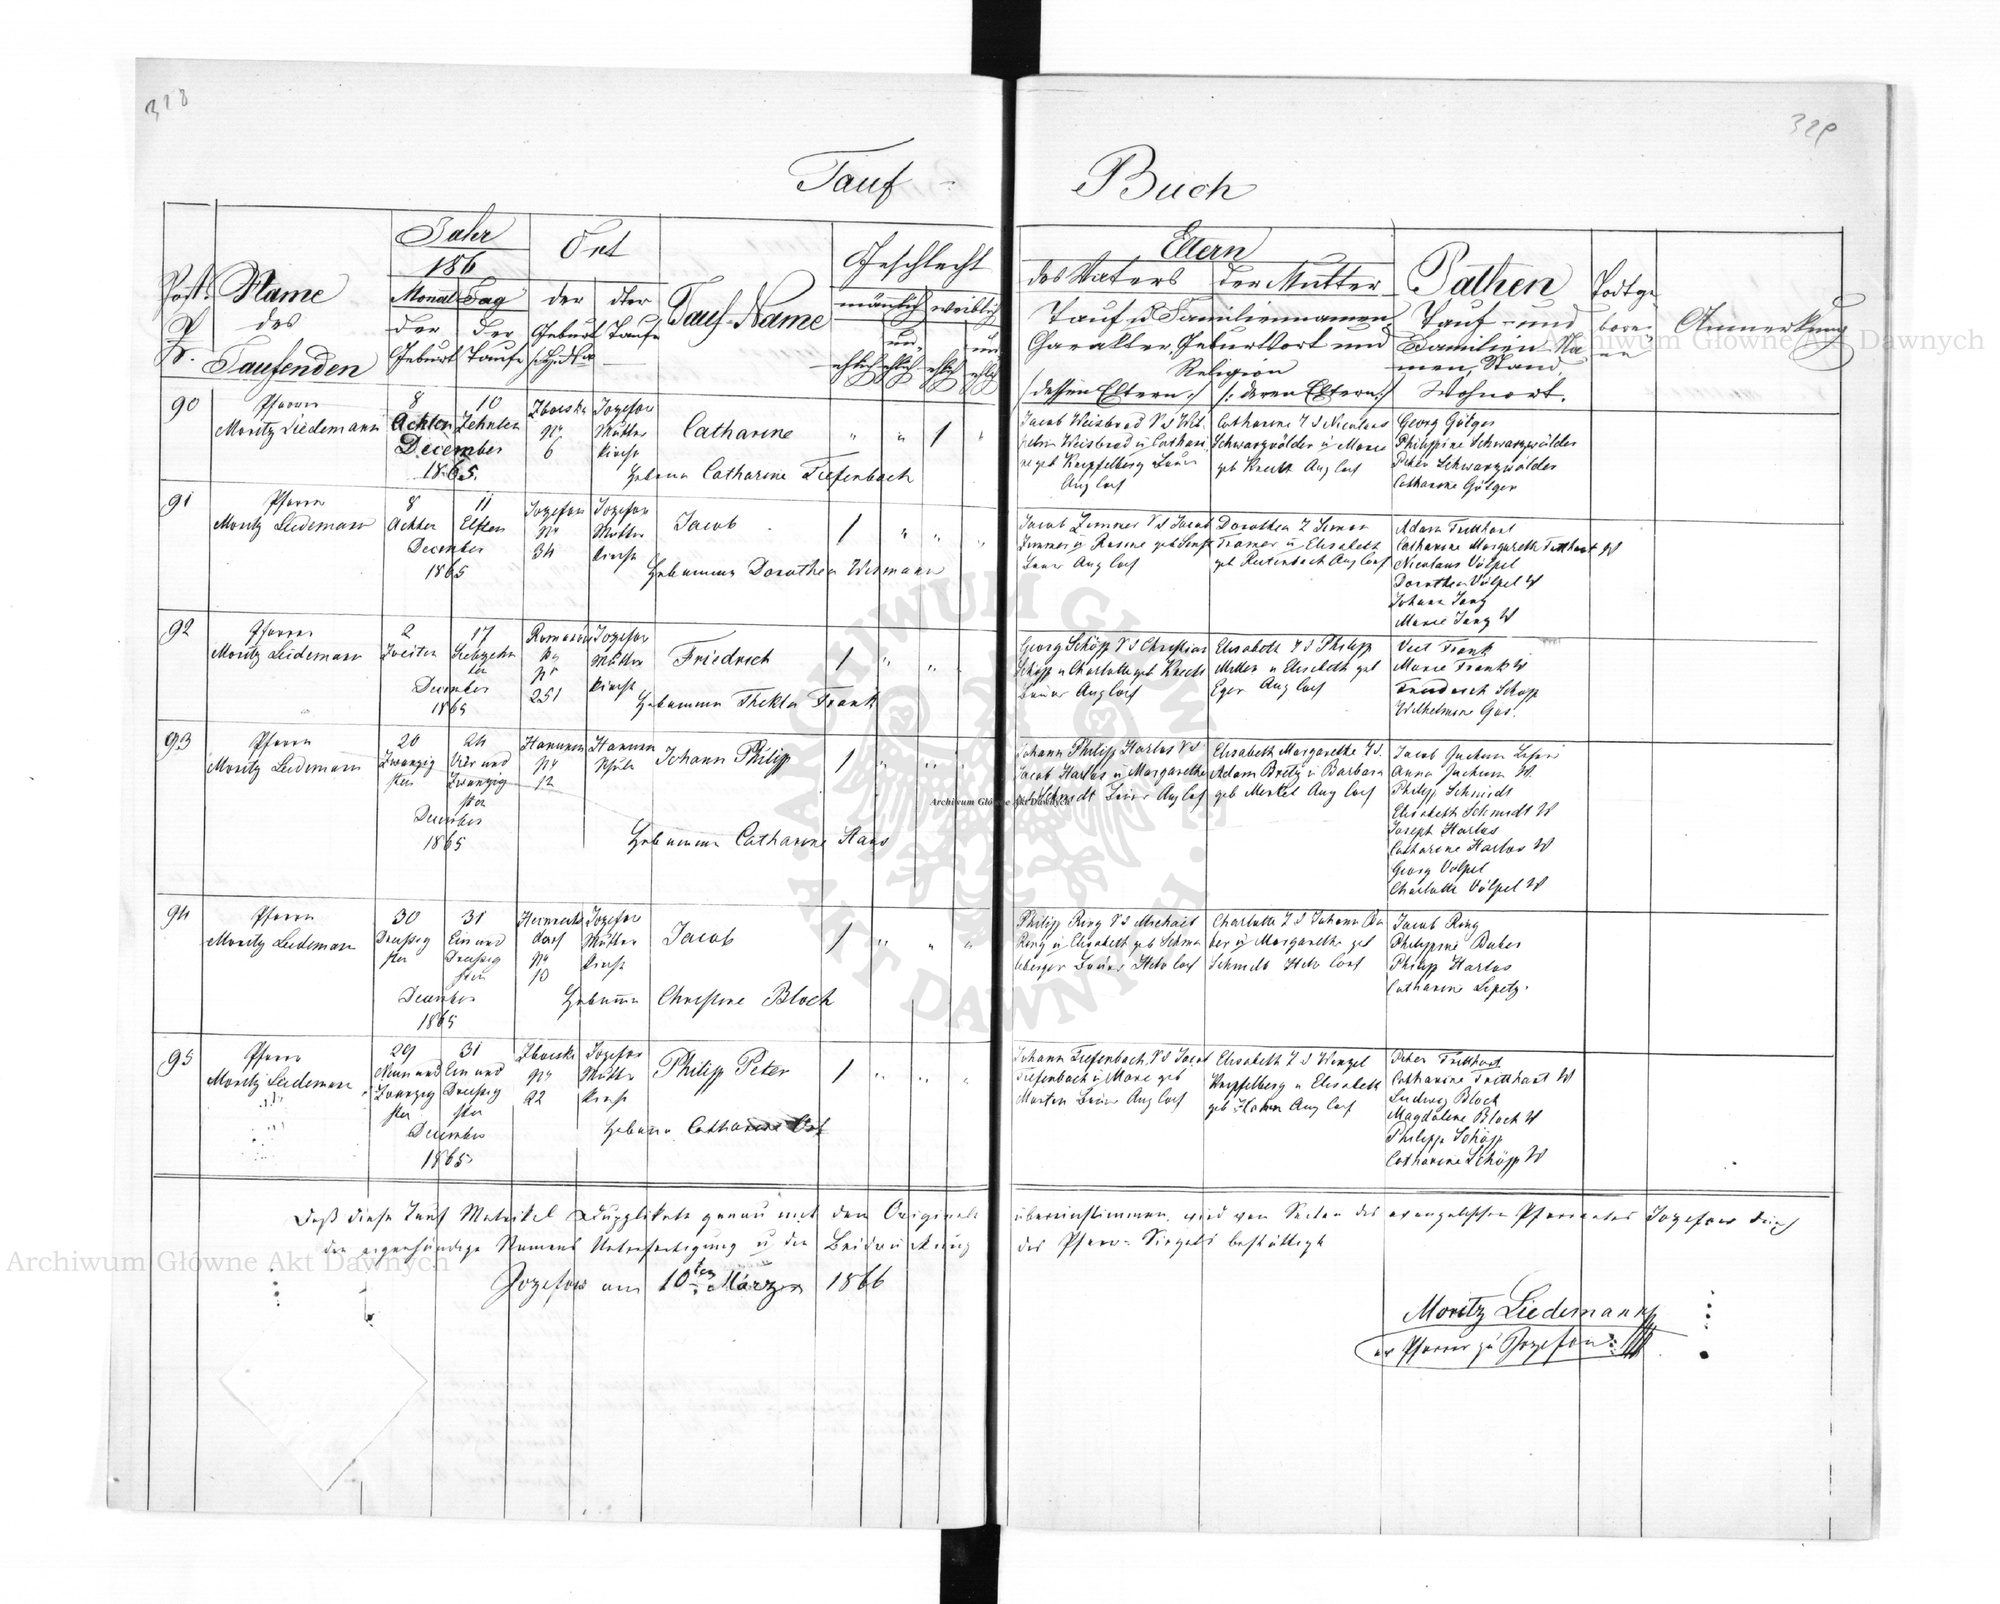 328
329
Tauf - Buch
Post. Nr.
Name des Taufenden
Jahr 186
Monat der Geburt
Tag der Taufe
Ort
der Geburt
der Taufe
Tauf-Name
Geschlecht
männlich weiblich
ehlich unehlich ehlich unehlich
Eltern
des Vaters der Mutter
Tauf u Familiennamen
Charakter, Geburtsort und
Religion
/:dessen Eltern:/ /:deren Eltern:/
Pathen
Tauf- und
Familien Na
men, Stand,
Wohnort.
Todtge
bore
nen
Anmerkung
90
Pfarrer
Moritz Liedemann
8 10
Achten Zehnten
December
1865.
Nr
6
Jozefow
Mutter
Kirche
Catharine
" " 1 "
Hebamme Catharine Tiefenbach
Jacob Weisbrod
Weisbrod u Cathari
ne geb Kneipfelberg Bauer
Aug Conf
Catharine T d Nicolaus
Schwarzwälder u Marie
geb Knecht Aug Conf
Georg Götger
Philippine Schwarzwälder
Peter Schwarzwälder
Catharine Götger
91
Pfarrer
Moritz Liedemann
8 11
Achten Elften
December
1865
Jozefow
Nr
34
Jozefow
Mutter
Kirche
Jacob
1 " " "
Hebamme Dorothea Wismann
Jacob Zimmer V S Jacob
Zimmer u Rosine geb Senft
Bauer Aug Conf
Dorothea T Simon
Kramer u Elisabeth
geb Reitenbach Aug Conf
Adam Tritthart
Catharine Margareth Tritthart W
Nicolaus Völpel
Dorothea Völpel W
Johann Jung
Marie Jung W
92
Pfarrer
Moritz Liedemann
2 17
Zweiten Siebzehn
ten
December
1865
Nr
251
Jozefow
Mutter
Kirche
Friedrich
1 " " "
Hebamme Thekla Frank
Georg Schöpp V S Christian
Schöpp u Charlotte geb Knecht
Bauer Aug Conf
Elisabeth T d Philipp
Miller u Elisabeth geb
Eger Aug Conf
Veit Frank
Marie Frank W
Friedrich Schöpp
Wilhelmine Gas.
93
Pfarrer
Moritz Liedemann
20 24
Zwanzig Vier und
sten Zwanzig
sten
December
1865
Hanunin
Nr
12
Hanunin
Schule
Johann Philipp
1 " " "
Hebamme Catharine Haas
Johann Philipp Harlos V S
Jacob Harlos u Margarethe
geb Schmidt Bauer Aug Conf
Elisabeth Margarethe T d
Adam Bretz u Barbara
geb Merkel Aug Conf
Jacob Juckum
Anna Juckum W
Philipp Schmidt
Elisabeth Schmidt W
Joseph Harlos
Catharine Harlos W
Georg Völpel
Charlotte Völpel W
94
Pfarrer
Moritz Liedemann
30 31
Dreissig Ein und
sten Dreissig
sten
December
1865
dorf
Nr
10
Jozefow
Mutter
Kirche
Jacob
1 " " "
Hebamme Christine Bloch
Philipp Ring V S Michael
Ring u Elisabeth geb Schna
beberger Bauer Helv Conf
Charlotte T d Johann Bu
ber u Margarethe geb
Schmidt Helv Conf
Jacob Ring
Philippine Buber
Philipp Harlos
Catharine Lipetz.
95
Pfarrer
Moritz Liedemann
29 31
Neun und Ein und
Zwanzig Dreissig
sten sten
December
1865
Nr
22
Jozefow
Mutter
Kirche
Philipp Peter
1 " " "
Hebamme Catharine
Johann Tiefenbach V S Jacob
Tiefenbach u Marie geb
Marten Bauer Aug Conf
Elisabeth T d Wenzel
Kneipfelberg u Elisabeth
geb Hahn Aug Conf
Peter Tritthard
Catharine Tritthart W
Ludwig Bloch
Magdalene Bloch W
Philipp Schöpp
Catharine Schöpp W
Daß diese Tauf Matrikel Dupplikate genau mit dem Originale übereinstimmen, wird von Seiten des evangelischen Pfarramtes Jozefow durch
die eigenhändige Namens Unterfertigung u die Beidrückung des Pfarr-Siegels bestättigt
Jozefow am 10ten März 1866
Moritz Liedemann
ev Pfarrer zu Jozefow
Archiwum Główne Akt Dawnych
Archiwum Główne Akt Dawnych
Archiwum Główne Akt Dawnych
ARCHIWUM GŁÓWNE · AKT DAWNYCH ·